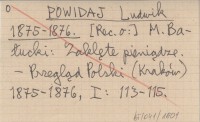 POWIDAJ Ludwik
1875-1876. [Rec. o:] M. Ba-
łucki: Zaklęte pieniądze.
- Przegląd Polski (Kraków)
1875-1876, I: 113-115.